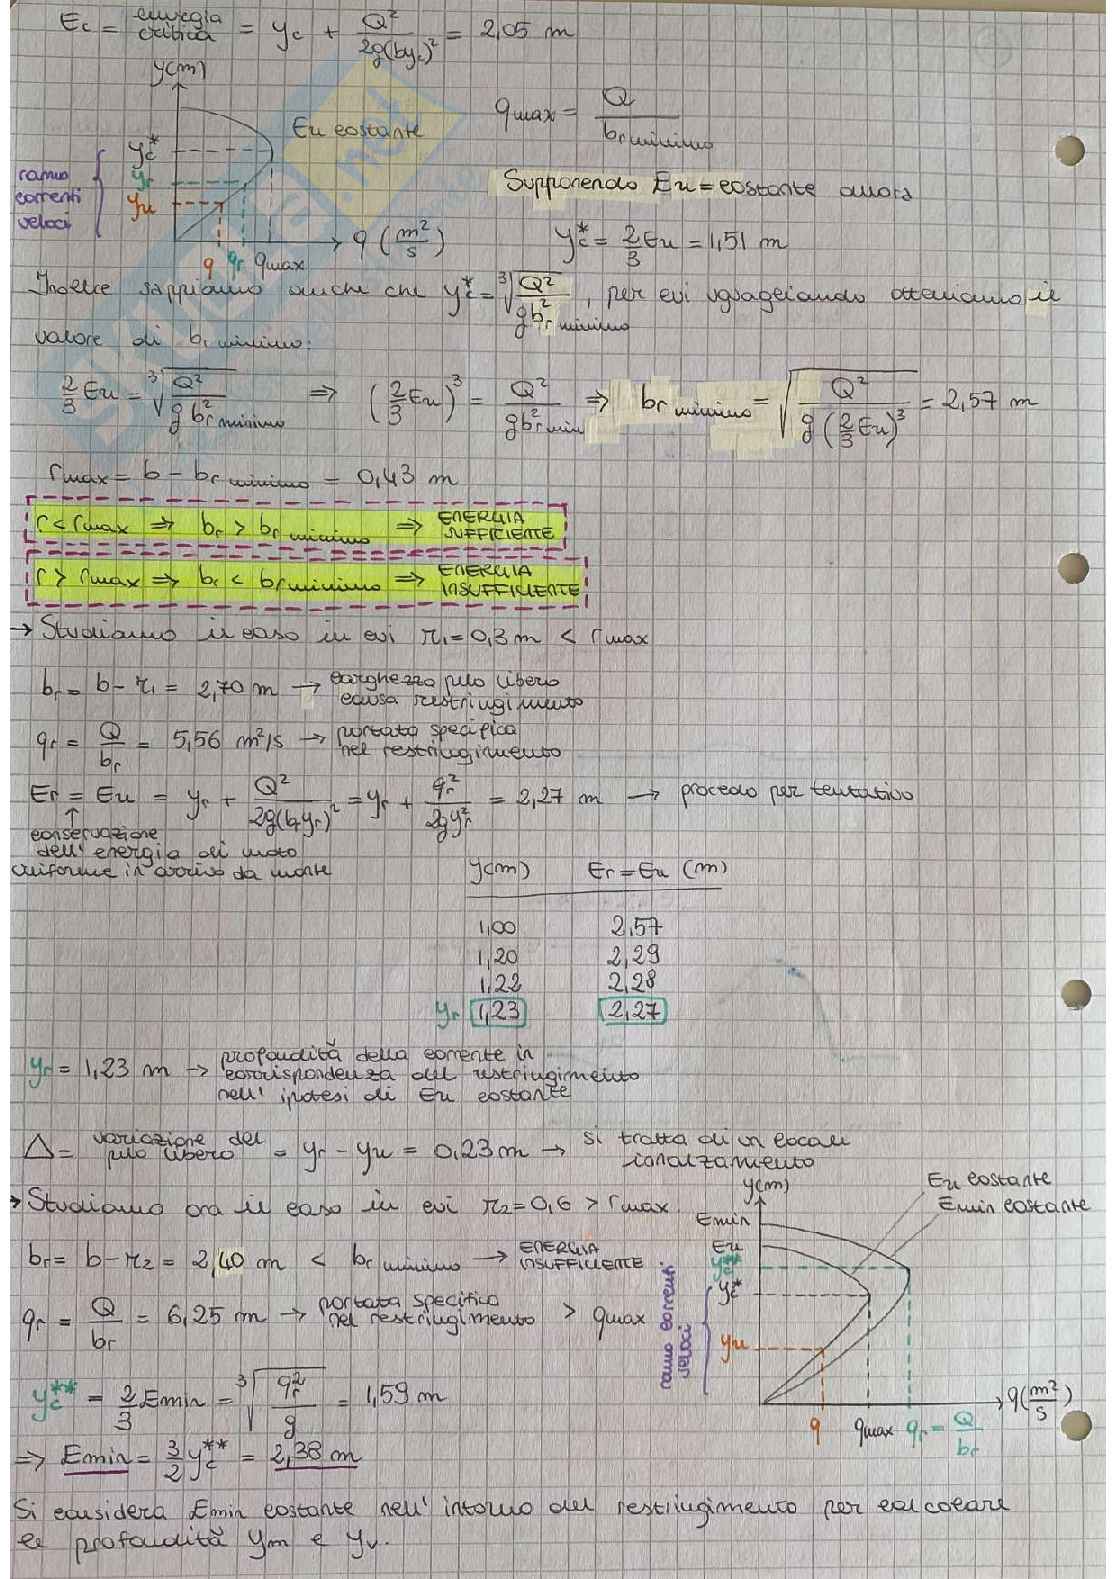 Ec = energia critica = yc + Q²/2g(byc)² = 2,05 m
y(m)
Eu costante
qmax = Q/br minimo
yc*
yr
yu
ramo correnti veloci
q qr qmax
q (m²/s)
Supponendo Eu = costante allora
yc* = 2/3 Eu = 1,51 m
Inoltre sappiamo anche che yc* = ∛(Q²/g br² minimo), per cui uguagliando otteniamo il
valore di br minimo:
2/3 Eu = ∛(Q²/g br² minimo) ⇒ (2/3 Eu)³ = Q²/g br² min ⇒ br minimo = √(Q²/g(2/3 Eu)³) = 2,57 m
rmax = b - br minimo = 0,43 m
r < rmax ⇒ br > br minimo ⇒ ENERGIA SUFFICIENTE
r > rmax ⇒ br < br minimo ⇒ ENERGIA INSUFFICIENTE
→ Studiamo il caso in cui r1 = 0,3 m < rmax
br = b - r1 = 2,70 m → larghezza pelo libero causa restringimento
qr = Q/br = 5,56 m²/s → portata specifica nel restringimento
Er = Eu = yr + Q²/2g(br yr)² = yr + qr²/2g yr² = 2,27 m → procedo per tentativo
↑
conservazione
dell'energia di moto
uniforme in arrivo da monte
y(m) Er = Eu (m)
1,00 2,57
1,20 2,29
1,22 2,28
yr 1,23 2,27
yr = 1,23 m → profondità della corrente in corrispondenza del restringimento nell'ipotesi di Eu costante
Δ = variazione del pelo libero = yr - yu = 0,23 m → si tratta di un locale innalzamento
→ Studiamo ora il caso in cui r2 = 0,6 > rmax
br = b - r2 = 2,40 m < br minimo → ENERGIA INSUFFICIENTE
qr = Q/br = 6,25 m → portata specifica nel restringimento > qmax
yc** = 2/3 Emin = ∛(qr²/g) = 1,59 m
⇒ Emin = 3/2 yc** = 2,38 m
y(m)
Eu costante
Emin costante
Emin
Eu
yc**
yc*
yu
ramo correnti veloci
q qmax qr = Q/br
q (m²/s)
Si considera Emin costante nell'intorno del restringimento per calcolare
le profondità ym e yv.